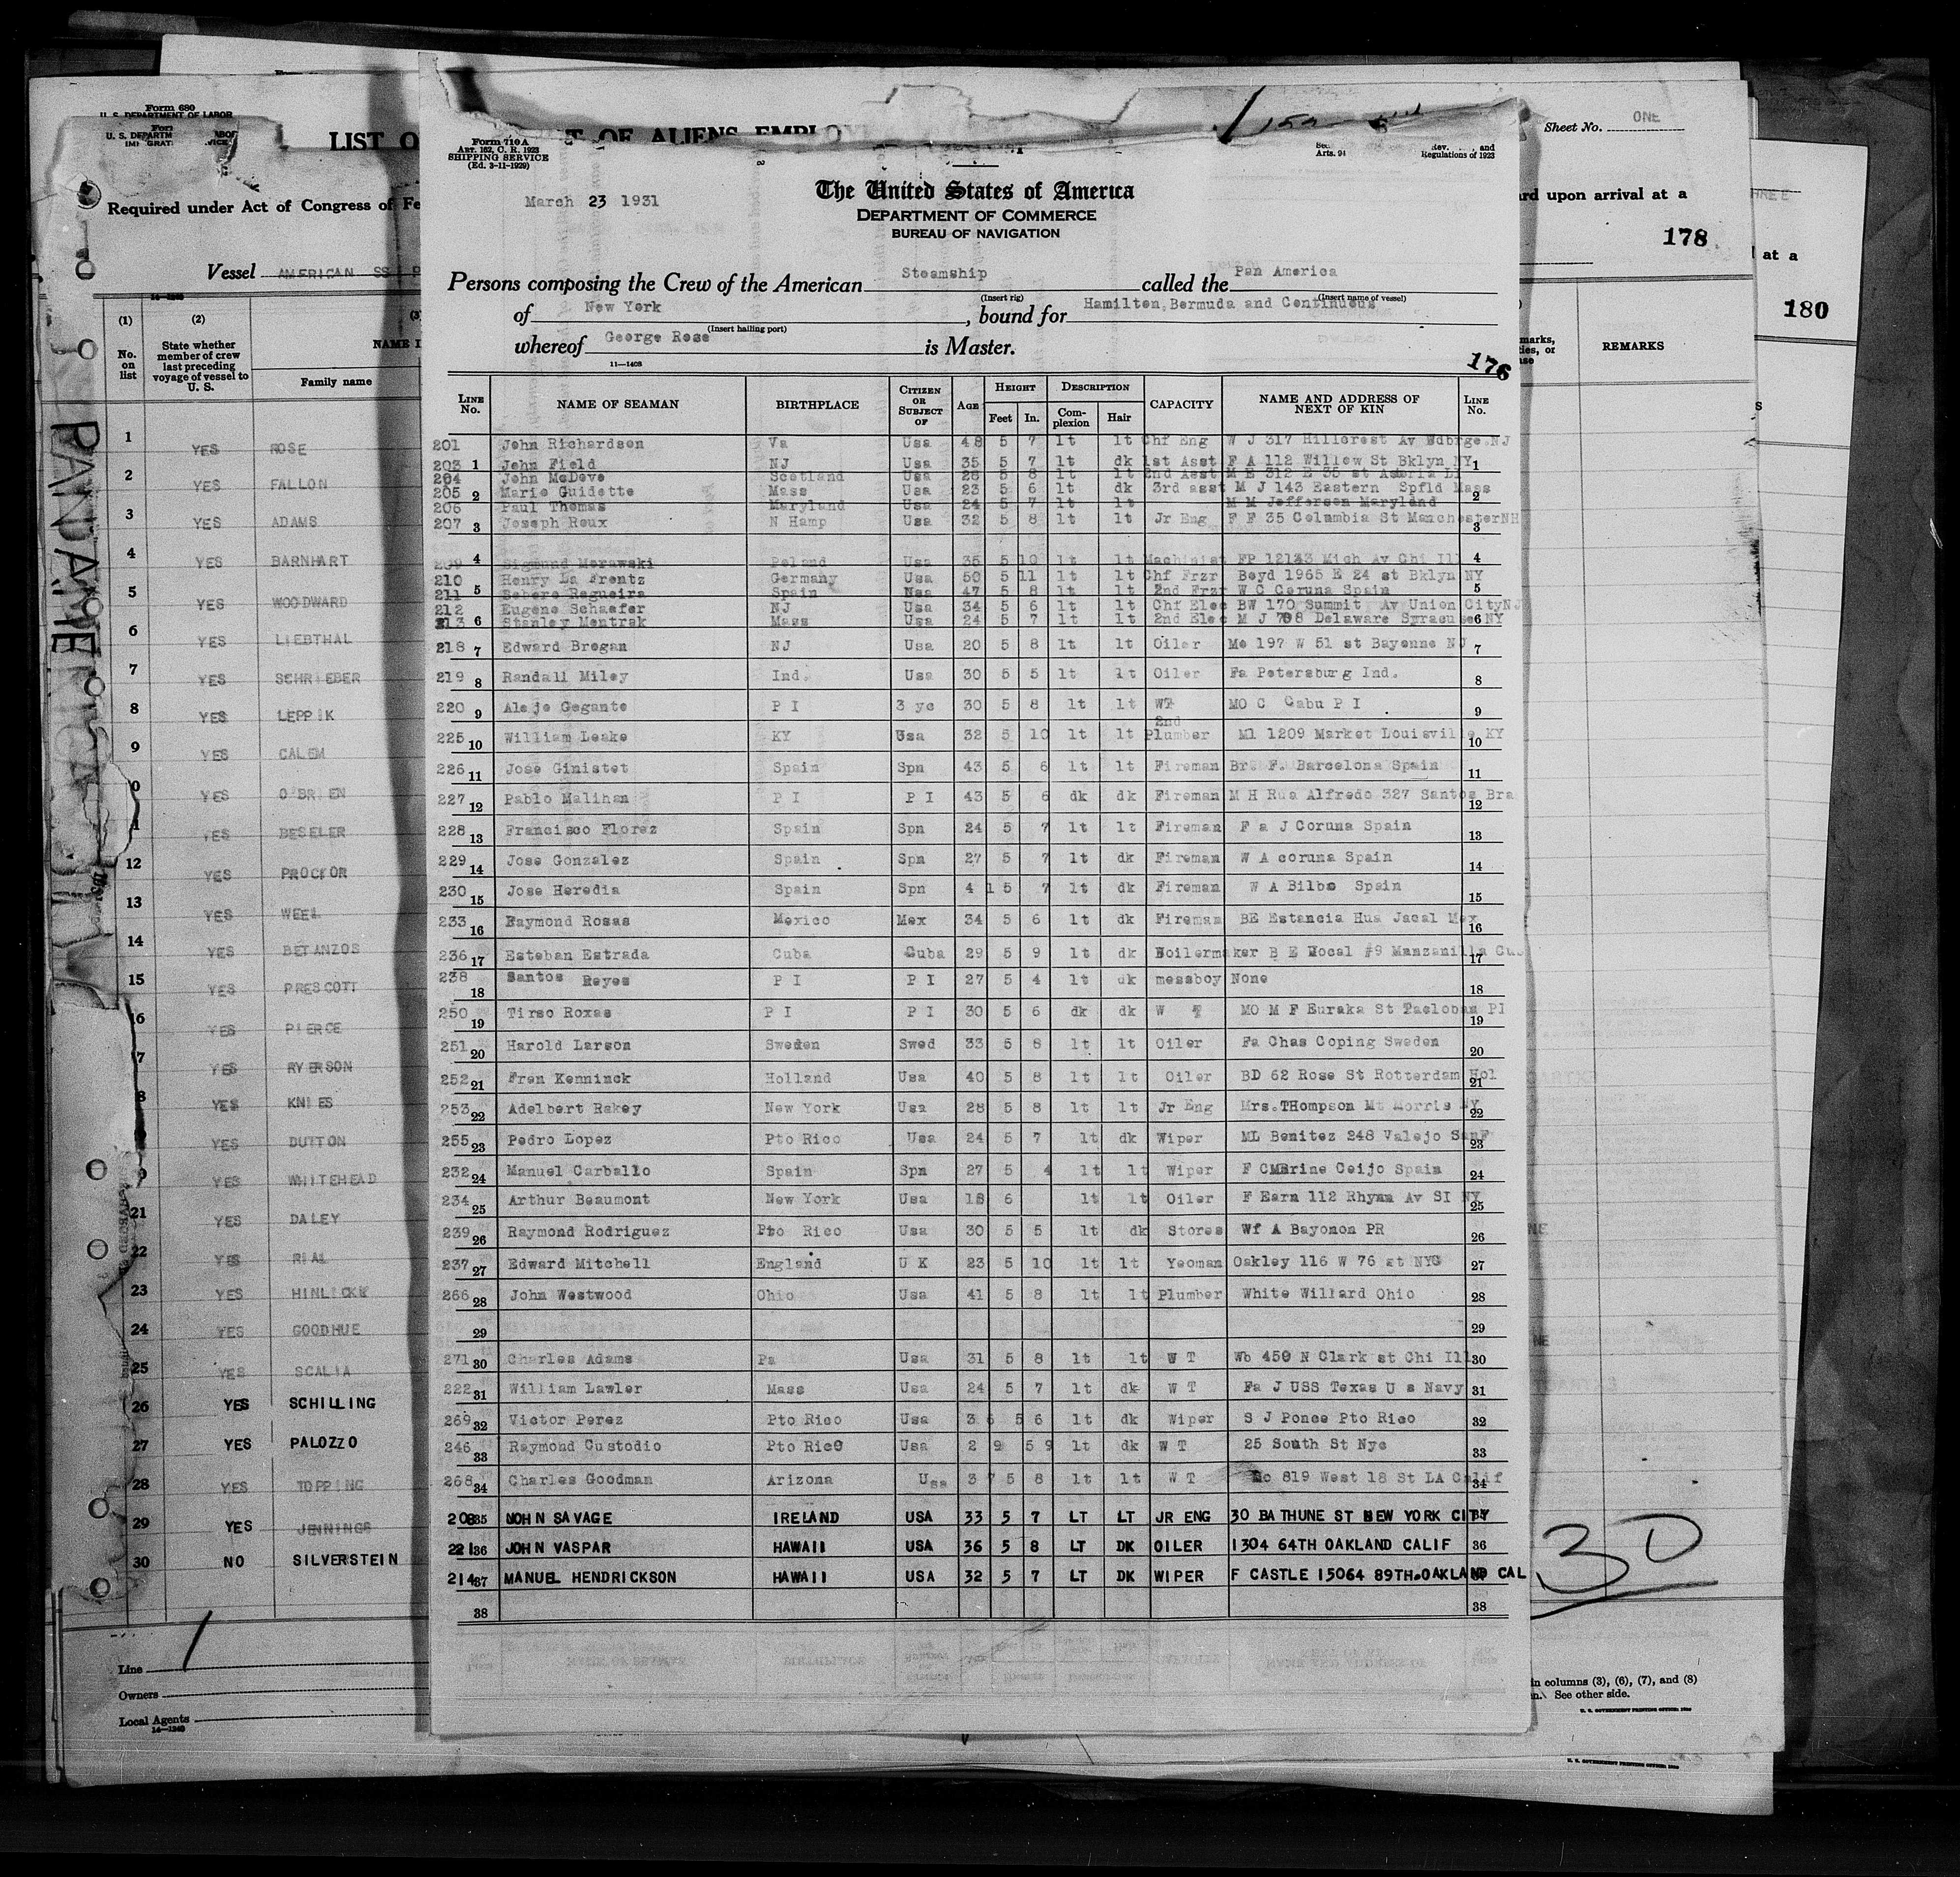 Form 680
U. S. DEPARTMENT OF LABOR
U. S. DEPARTM
LIST O
T OF ALIENS EMPLO
Required under Act of Congress of Fe
Vessel AMERICAN SS P
(1) (2) (3)
No. on list
State whether member of crew last preceding voyage of vessel to U. S.
NAME I
Family name
1 YES ROSE
2 YES FALLON
3 YES ADAMS
4 YES BARNHART
5 YES WOODWARD
6 YES LIEBTHAL
7 YES SCHRIEBER
8 YES LEPPIK
9 YES CALEM
0 YES O'BRIEN
1 YES BESELER
12 YES PROCTOR
13 YES WEEL
14 YES BETANZOS
15 YES PRESCOTT
16 YES PIERCE
7 YES RYERSON
8 YES KNIES
9 YES DUTTON
0 YES WHITEHEAD
21 YES DALEY
22 YES RIAL
23 YES HINLICKY
24 YES GOODHUE
25 YES SCALIA
26 YES SCHILLING
27 YES PALOZZO
28 YES TOPPING
29 YES JENNINGS
30 NO SILVERSTEIN
Line
Owners
Local Agents
14—1240
PAN AME
Form 710 A
Art. 162, C. R. 1923
SHIPPING SERVICE
(Ed. 3-11-1929)
Arts. 91
Regulations of 1923
March 23 1931
The United States of America
DEPARTMENT OF COMMERCE
BUREAU OF NAVIGATION
Persons composing the Crew of the American Steamship called the Pan America
(Insert rig) (Insert name of vessel)
of New York, bound for Hamilton, Bermuda and Continuous
(Insert hailing port)
whereof George Rose is Master.
11—1408
176
LINE No. NAME OF SEAMAN BIRTHPLACE CITIZEN OR SUBJECT OF AGE HEIGHT Feet In. DESCRIPTION Complexion Hair CAPACITY NAME AND ADDRESS OF NEXT OF KIN LINE No.
201 John Richardson Va Usa 48 5 7 lt lt Chf Eng W J 317 Hillcrest Av Wdbrge NJ
203 1 John Field NJ Usa 35 5 7 lt dk 1st Asst F A 112 Willow St Bklyn NY 1
204 John McDove Scotland Usa 28 5 8 lt lt 2nd Asst M E 312 E 35 st Astoria LI
205 2 Marie Guidette Mass Usa 23 5 6 lt dk 3rd asst M J 143 Eastern Spfld Mass 2
206 Paul Thomas Maryland Usa 24 5 7 lt lt M M Jefferson Maryland
207 3 Joseph Roux N Hamp Usa 32 5 8 lt lt Jr Eng F F 35 Columbia St ManchesterNH 3
209 4 Sigmund Morawski Poland Usa 35 5 10 lt lt Machinist FP 12133 Mich Av Chi Ill 4
210 Henry La Frentz Germany Usa 50 5 11 lt lt Chf Frzr Boyd 1965 E 24 st Bklyn NY
211 5 Sebero Regueira Spain Usa 47 5 8 lt lt 2nd Frzr W C Coruna Spain 5
212 Eugene Schaefer NJ Usa 34 5 6 lt lt Chf Elec BW 170 Summit Av Union CityNJ
213 6 Stanley Mentrak Mass Usa 24 5 7 lt lt 2nd Elec M J 708 Delaware Syracuse NY 6
218 7 Edward Brogan NJ Usa 20 5 8 lt lt Oiler Mo 197 W 51 st Bayonne NJ 7
219 8 Randall Miley Ind. Usa 30 5 5 lt lt Oiler Fa Petersburg Ind. 8
220 9 Alejo Gegante P I 3 yc 30 5 8 lt lt WT MO C Cabu P I 9
225 10 William Leake KY Usa 32 5 10 lt lt 2nd Plumber Ml 1209 Market Louisville KY 10
226 11 Jose Ginistet Spain Spn 43 5 6 lt lt Fireman Br. F. Barcelona Spain 11
227 12 Pablo Malihan P I P I 43 5 6 dk dk Fireman M H Rua Alfredo 327 Santos Bra 12
228 13 Francisco Florez Spain Spn 24 5 7 lt lt Fireman F a J Coruna Spain 13
229 14 Jose Gonzalez Spain Spn 27 5 7 lt dk Fireman W A coruna Spain 14
230 15 Jose Heredia Spain Spn 41 5 7 lt dk Fireman W A Bilbo Spain 15
233 16 Raymond Rosas Mexico Mex 34 5 6 lt dk Fireman BE Estancia Hua Jacal Mex 16
236 17 Esteban Estrada Cuba Cuba 29 5 9 lt dk Boilermaker B E Nocal #9 Manzanilla Cu 17
238 18 Santos Reyes P I P I 27 5 4 lt dk messboy None 18
250 19 Tirso Roxas P I P I 30 5 6 dk dk W T MO M F Euraka St Tacloban PI 19
251 20 Harold Larson Sweden Swed 33 5 8 lt lt Oiler Fa Chas Coping Sweden 20
252 21 Fren Kenninck Holland Usa 40 5 8 lt lt Oiler BD 62 Rose St Rotterdam Hol 21
253 22 Adelbert Rakey New York Usa 28 5 8 lt lt Jr Eng Mrs.THompson Mt Morris NY 22
255 23 Pedro Lopez Pto Rico Usa 24 5 7 lt dk Wiper ML Benitez 248 Valejo SanF 23
232 24 Manuel Carballo Spain Spn 27 5 4 lt lt Wiper F CMBrine Ceijo Spain 24
234 25 Arthur Beaumont New York Usa 18 6 lt lt Oiler F Earn 112 Rhynn Av SI NY 25
239 26 Raymond Rodriguez Pto Rico Usa 30 5 5 lt dk Stores Wf A Bayonon PR 26
237 27 Edward Mitchell England U K 23 5 10 lt lt Yeoman Oakley 116 W 76 st NYC 27
266 28 John Westwood Ohio Usa 41 5 8 lt lt Plumber White Willard Ohio 28
29 29
271 30 Charles Adams Pa Usa 31 5 8 lt lt W T Wb 450 N Clark st Chi Ill 30
222 31 William Lawler Mass Usa 24 5 7 lt dk W T Fa J USS Texas U s Navy 31
269 32 Victor Perez Pto Rico Usa 36 5 6 lt dk Wiper S J Ponce Pto Rico 32
246 33 Raymond Custodio Pto Rico Usa 29 5 9 lt dk W T 25 South St Nyc 33
268 34 Charles Goodman Arizona Usa 37 5 8 lt lt W T Mo 819 West 18 St LA Calif 34
208 35 JOHN SAVAGE IRELAND USA 33 5 7 LT LT JR ENG 30 BATHUNE ST NEW YORK CITY 35
221 36 JOHN VASPAR HAWAII USA 36 5 8 LT DK OILER 1304 64TH OAKLAND CALIF 36
214 37 MANUEL HENDRICKSON HAWAII USA 32 5 7 LT DK WIPER F CASTLE 15064 89TH.OAKLAND CAL
38 38
Sheet No. ONE
rd upon arrival at a
178
at a
180
REMARKS
30
in columns (3), (6), (7), and (8)
See other side.
U. S. GOVERNMENT PRINTING OFFICE